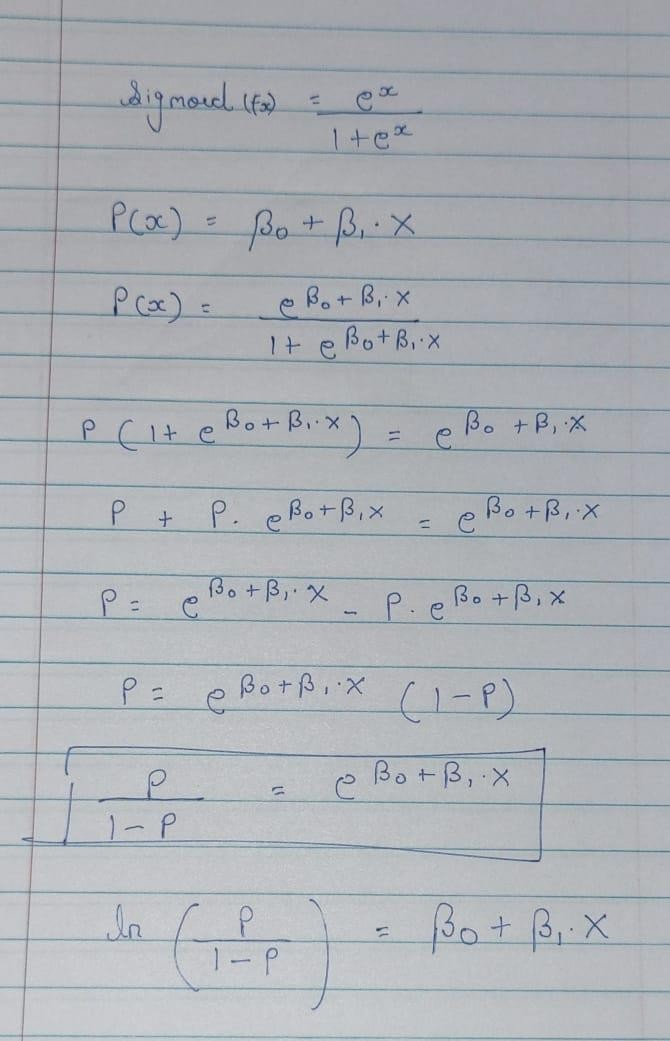 Sigmoid (fx) = e^x / 1+e^x
P(x) = β₀ + β₁·X
P(x) = e^β₀+β₁·X / 1+ e^β₀+β₁·X
P (1+ e^β₀+β₁·X) = e^β₀+β₁·X
P + P. e^β₀+β₁X = e^β₀+β₁·X
P = e^β₀+β₁·X - P. e^β₀+β₁X
P = e^β₀+β₁·X (1-P)
P / 1-P = e^β₀+β₁·X
ln (P / 1-P) = β₀ + β₁·X